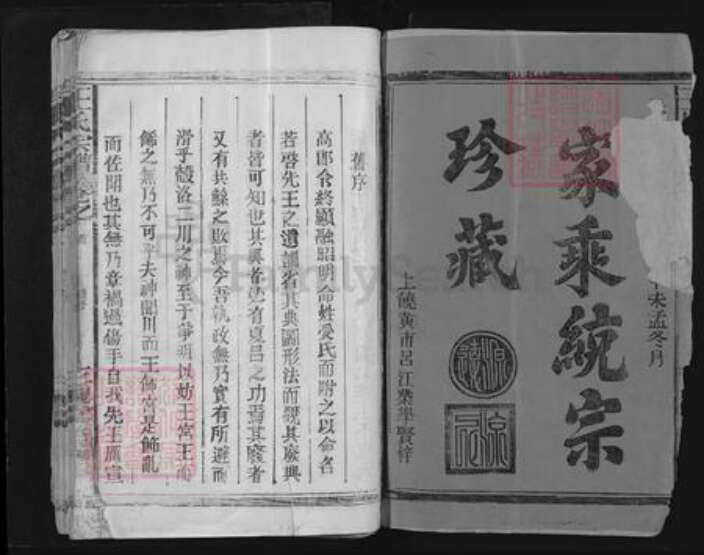 未孟冬月
家乘統宗
珍藏
上饒黃市呂江業華賢梓
舊序
高郎令終顯融昭明命姓受氏而附之以命名
若啓先王之遺訓省其典圖形法而觀其廢興
者皆可知也其興者必有夏呂之功焉其廢者
又有共鯀之敗焉今吾執政無乃實有所避而
滑乎穀洛二川之神至于爭明以妨王宮王而
餙之無乃不可乎夫神聞川而王餙宮是餙亂
而佐鬪也其無乃章禍過傷乎自我先王厲宣
王氏宗譜卷之
FamilySearch